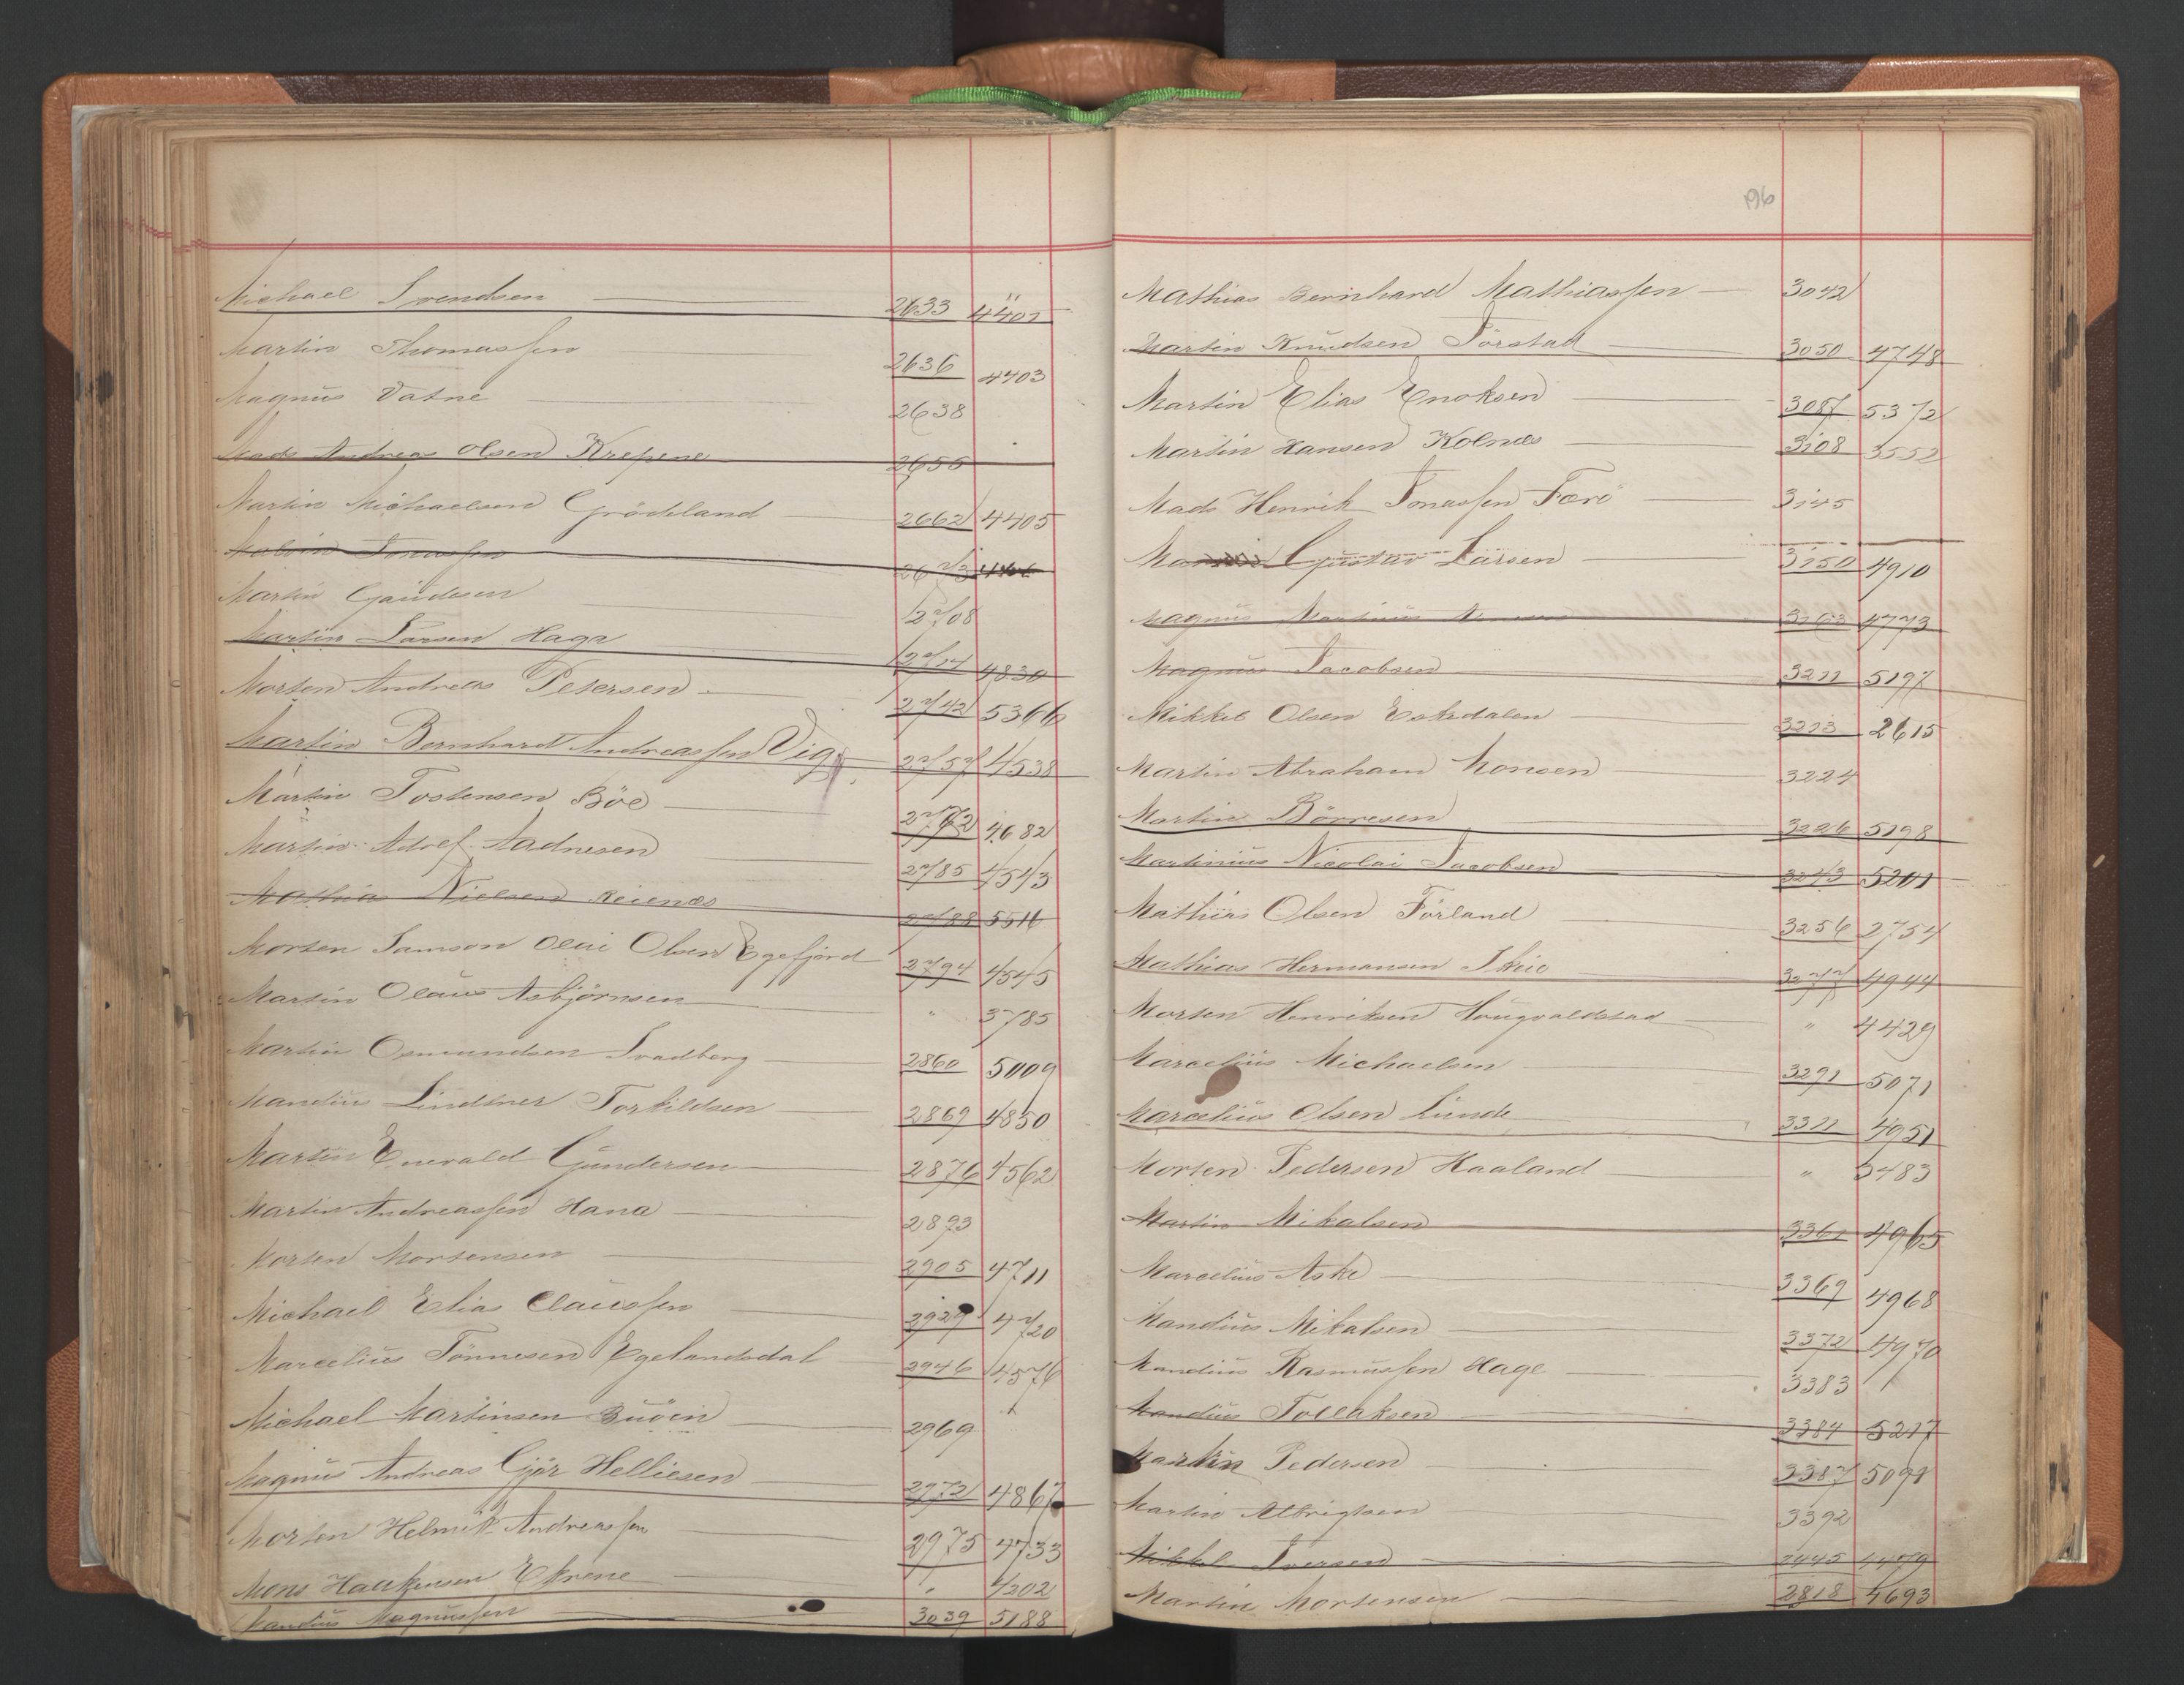 Michael Svendsen 2633 4401
Martin Thomassen 2636 4403
Magnus Vatne 2638
Mads Andreas Olsen Krepene 2655
Martin Michaelsen Grödeland 2662 4405
Jonassen 2673
Martin Gaudesen 2708
Martin Larsen Haga 4830
Morten Andreas Petersen 2742 5366
Martin Bernhard Andreassen Vig 2757 4538
Martin Tostensen Böe 2762 4682
Martin Adolf Aadnesen 2785 4543
Mathias Nielsen Reienæs 2788 5516
Morten Samson Olai Olsen Egefjord 2794 4545
Martin Olaus Asbjörnsen " 3785
Martin Osmundsen Svadberg 2860 5009
Mandius Lindtner Torkildsen 2869 4850
Martin Enevald Gundersen 2876 4562
Martin Andreassen Hana 2893
Morten Mortensen 2905 4711
Michael Elias Claussen 2929 4720
Marcelius Tönnesen Egelandsdal 2946 4576
Michael Martinsen 2969
Magnus Andreas Gjör Helliesen 2972 4867
Morten Helmik Andreassen 2975 4733
Mons Haakensen Ekrene " 4202
Mandius Magnussen 3039 5188
196
Mathias Bernhard Mathiassen 3042
Martin Knudsen Törstad 3050 4748
Martin Elias Enoksen 3087 5372
Martin Hansen Kolnæs 3108 3552
Mads Henrik Jonassen Færö 3145
Gustav Larsen 3150 4910
Magnus Martinus 3163 4773
Magnus Jacobsen 3211 5197
Mikkel Olsen Eskedalen 3223 2615
Martin Abraham Monsen 3224
Martin Börresen 3226 5198
Martinius Nicolai Jacobsen 3243 5201
Mathias Olsen Förland 3256 2754
Mathias Hermansen Skeie 3277 4944
Morten Henriksen Hougvaldstad " 4429
Marcelius Michaelsen 3291 5071
Marcelius Olsen Lunde 3311 4951
Morten Pedersen Haaland " 3483
Martin Mikalsen 3361 4965
Marcelius Aske 3369 4968
Mandius Mikalsen 3372 4970
Mandius Rasmussen Hage 3383
Mandius Tollaksen 3384 5217
Martin Pedersen 3387 5091
Martin Albrigtsen 3392
Mikkel Iversen 2445 4479
Martin Mortensen 2818 4693